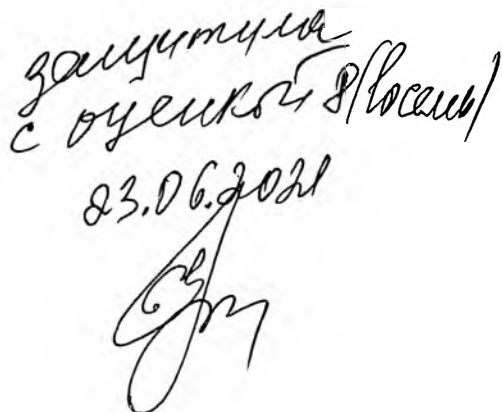 защитила
с оценкой 8 (восемь)
23.06.2021